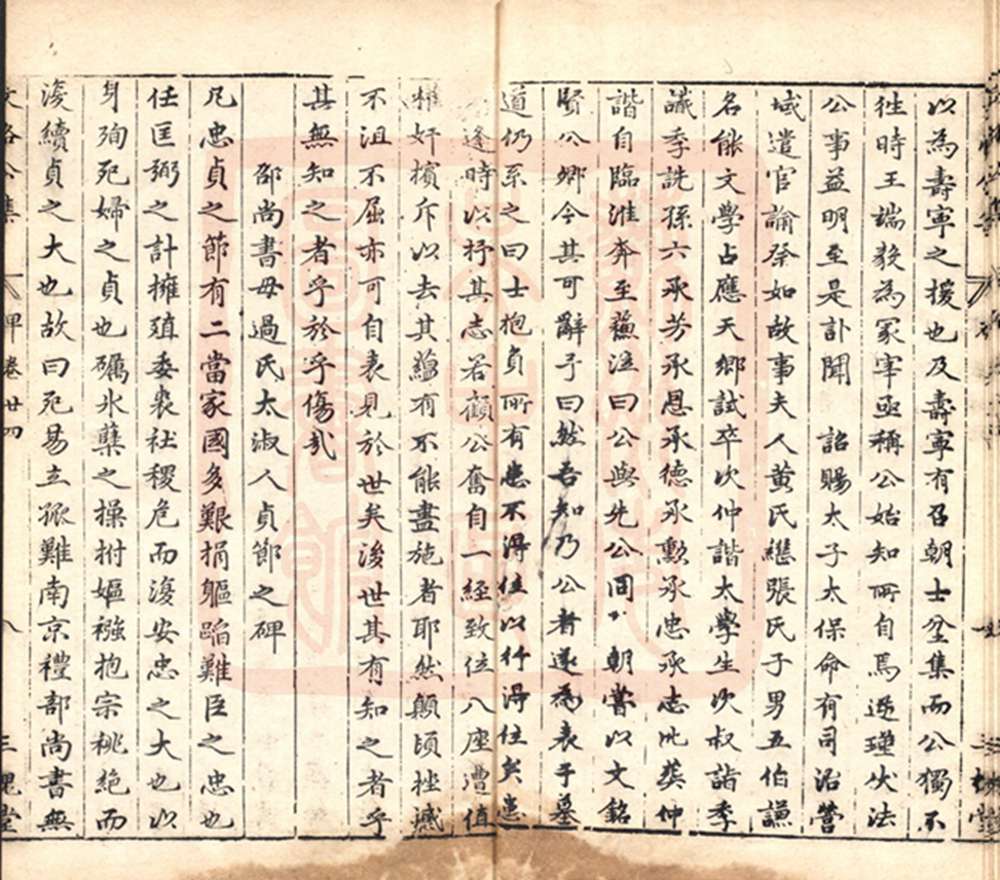 以為壽寧之援也及壽寧有召朝士坌集而公獨不
徃時王端毅為冢宰亟稱公始知所自焉逆瑾伏法
公事益明至是訃聞　詔賜太子太保命有司治營
域遣官諭祭如故事夫人黃氏繼張氏子男五伯謙
名能文學占應天鄉試卒次仲諧太學生次叔詣季
議季詵孫六承芳承恩承德承勲承忠承志比葬仲
諧自臨淮奔至蘓泣曰公與先公同朝嘗以文銘
賢公鄉今其可辭乎曰然吾知乃公者遂為表于墓
道仍系之曰士抱貞所有患不得位以行得位矣患
逢時以抒其志若顧公奮自一經致位八座遭值
權奸擯斥以去其藴有不能盡施者耶然顛頃挫衊
不沮不屈亦可自表見於世矣後世其有知之者乎
其無知之者乎於乎傷哉
邵尚書母過氏太淑人貞節之碑
凡忠貞之節有二當家國多艱捐軀蹈難臣之忠也
任匡弼之計擁殖委裘社稷危而復安忠之大也以
身殉死婦之貞也礪氷蘖之操拊嫗襁抱宗祧絶而
復續貞之大也故曰死易立孤難南京禮部尚書無
碑卷廿四
八
三槐堂